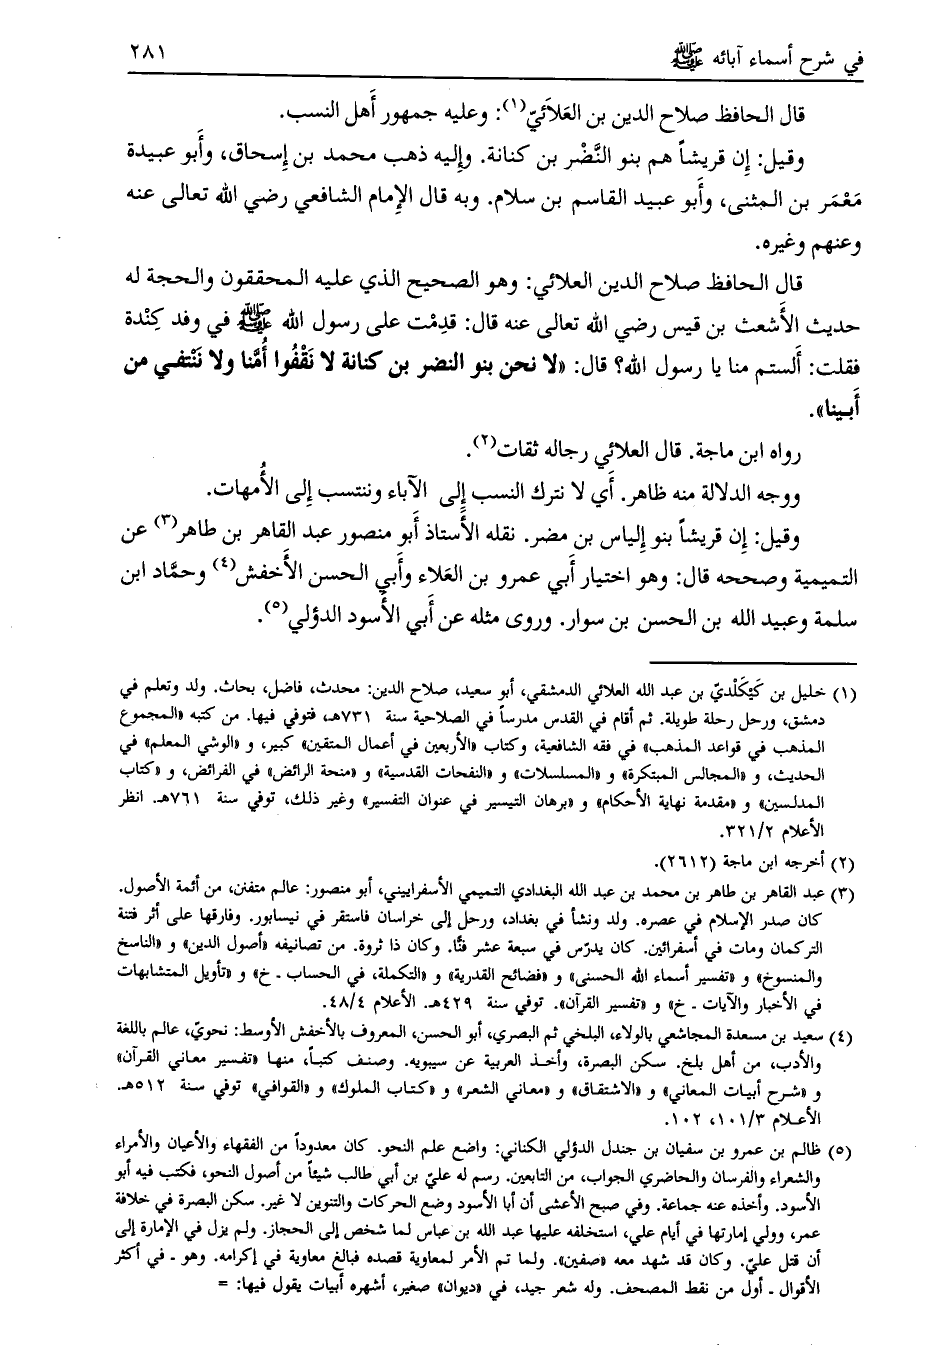 في شرح أسماء آبائه ﷺ ٢٨١
قال الحافظ صلاح الدين بن العَلاَئيّ(١): وعليه جمهور أَهل النسب.
وقيل: إِن قريشاً هم بنو النَّضْر بن كنانة. وإِليه ذهب محمد بن إِسحاق، وأَبو عبيدة
مَعْمَر بن المثنى، وأَبو عبيد القاسم بن سلام. وبه قال الإِمام الشافعي رضي الله تعالى عنه
وعنهم وغيره.
قال الحافظ صلاح الدين العلائي: وهو الصحيح الذي عليه المحققون والحجة له
حديث الأَشعث بن قيس رضي الله تعالى عنه قال: قدِمْت على رسول الله ﷺ في وفد كِنْدة
فقلت: أَلستم منا يا رسول الله؟ قال: «لا نحن بنو النضر بن كنانة لا نَقْفُوا أُمَّنا ولا نَنْتفـي من
أَبـينا».
رواه ابن ماجة. قال العلائي رجاله ثقات(٢).
ووجه الدلالة منه ظاهر. أَي لا نترك النسب إِلى الآباء وننتسب إِلى الأُمهات.
وقيل: إِن قريشاً بنو إِلياس بن مضر. نقله الأَستاذ أَبو منصور عبد القاهر بن طاهر(٣) عن
التميمية وصححه قال: وهو اختيار أَبي عمرو بن العَلاء وأَبي الحسن الأَخفش(٤) وحمَّاد ابن
سلمة وعبيد الله بن الحسن بن سوار. وروى مثله عن أَبي الأَسود الدؤلي(٥).
(١) خليل بن كَيْكَلْديّ بن عبد الله العلائي الدمشقي، أبو سعيد، صلاح الدين: محدث، فاضل، بحاث. ولد وتعلم في
دمشق، ورحل رحلة طويلة. ثم أقام في القدس مدرساً في الصلاحية سنة ٧٣١هـ، فتوفي فيها. من كتبه «المجموع
المذهب في قواعد المذهب» في فقه الشافعية، وكتاب «الأربعين في أعمال المتقين» كبير، و «الوشي المعلم» في
الحديث، و «المجالس المبتكرة» و «المسلسلات» و «النفحات القدسية» و «منحة الرائض» في الفرائض، و «كتاب
المدلسين» و «مقدمة نهاية الأحكام» و «برهان التيسير في عنوان التفسير» وغير ذلك، توفي سنة ٧٦١هـ. انظر
الأعلام ٣٢١/٢.
(٢) أخرجه ابن ماجة (٢٦١٢).
(٣) عبد القاهر بن طاهر بن محمد بن عبد الله البغدادي التميمي الأسفراييني، أبو منصور: عالم متفنن، من أئمة الأصول.
كان صدر الإسلام في عصره. ولد ونشأ في بغداد، ورحل إلى خراسان فاستقر في نيسابور. وفارقها على أثر فتنة
التركمان ومات في أسفرائين. كان يدرّس في سبعة عشر فنًّا. وكان ذا ثروة. من تصانيفه «أصول الدين» و «الناسخ
والمنسوخ» و «تفسير أسماء الله الحسنى» و «فضائح القدرية» و «التكملة، في الحساب ـ خ» و «تأويل المتشابهات
في الأخبار والآيات ـ خ» و «تفسير القرآن». توفي سنة ٤٢٩هـ. الأعلام ٤٨/٤.
(٤) سعيد بن مسعدة المجاشعي بالولاء، البلخي ثم البصري، أبو الحسن، المعروف بالأخفش الأوسط: نحويّ، عالم باللغة
والأدب، من أهل بلخ. سكن البصرة، وأخـذ العربية عن سيبويه. وصنف كتباً، منهـا «تفسير معاني القرآن»
و «شـرح أبيـات المعاني» و «الاشتقاق» و «معاني الشعر» و «كتـاب الملوك» و «القوافي» توفي سنة ٥١٢هـ.
الأعـلام ١٠١/٣، ١٠٢.
(٥) ظالم بن عمرو بن سفيان بن جندل الدؤلي الكناني: واضع علم النحو. كان معدوداً من الفقهاء والأعيان والأمراء
والشعراء والفرسان والحاضري الجواب، من التابعين. رسم له عليّ بن أبي طالب شيئاً من أصول النحو، فكتب فيه أبو
الأسود. وأخذه عنه جماعة. وفي صبح الأعشى أن أبا الأسود وضع الحركات والتنوين لا غير. سكن البصرة في خلافة
عمر، وولي إمارتها في أيام علي، استخلفه عليها عبد الله بن عباس لما شخص إلى الحجاز. ولم يزل في الإمارة إلى
أن قتل عليّ. وكان قد شهد معه «صفين». ولما تم الأمر لمعاوية قصده فبالغ معاوية في إكرامه. وهو ـ في أكثر
الأقوال ـ أول من نقط المصحف. وله شعر جيد، في «ديوان» صغير، أشهره أبيات يقول فيها: =